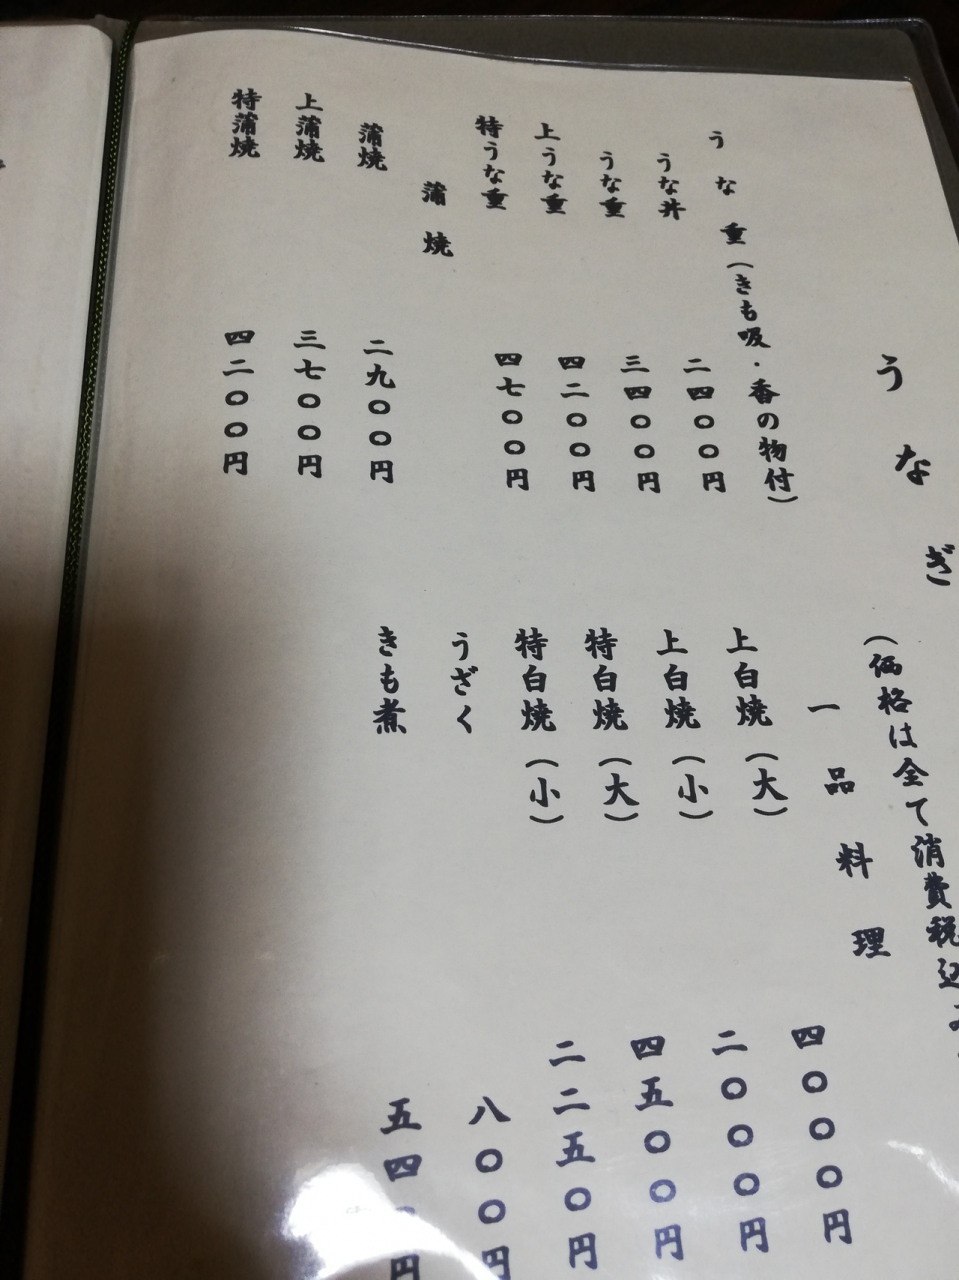 うなぎ
(価格は全て消費税込
うな重(きも吸・香の物付)
うな丼 二四〇〇円
うな重 三四〇〇円
上うな重 四二〇〇円
特うな重 四七〇〇円
蒲焼
蒲焼 二九〇〇円
上蒲焼 三七〇〇円
特蒲焼 四二〇〇円
一品料理
上白焼(大) 四〇〇〇円
上白焼(小) 二〇〇〇円
特白焼(大) 四五〇〇円
特白焼(小) 二二五〇円
うざく 八〇〇円
きも煮 五四〇円